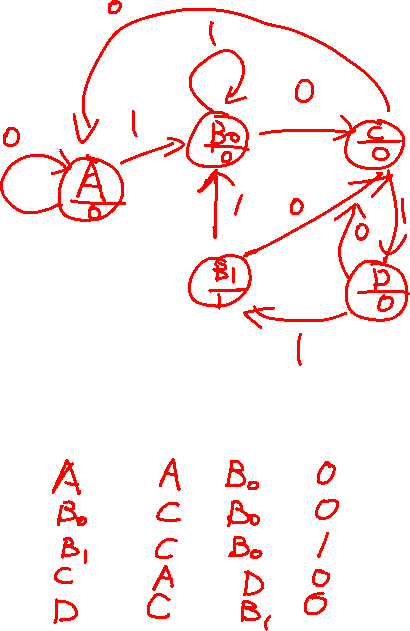 0
1
0
0
1
B₀
0
C
0
A
0
1
0
1
0
B₁
1
D
0
1
A A B₀ 0
B₀ C B₀ 0
B₁ C B₀ 1
C A D 0
D C B₁ 0